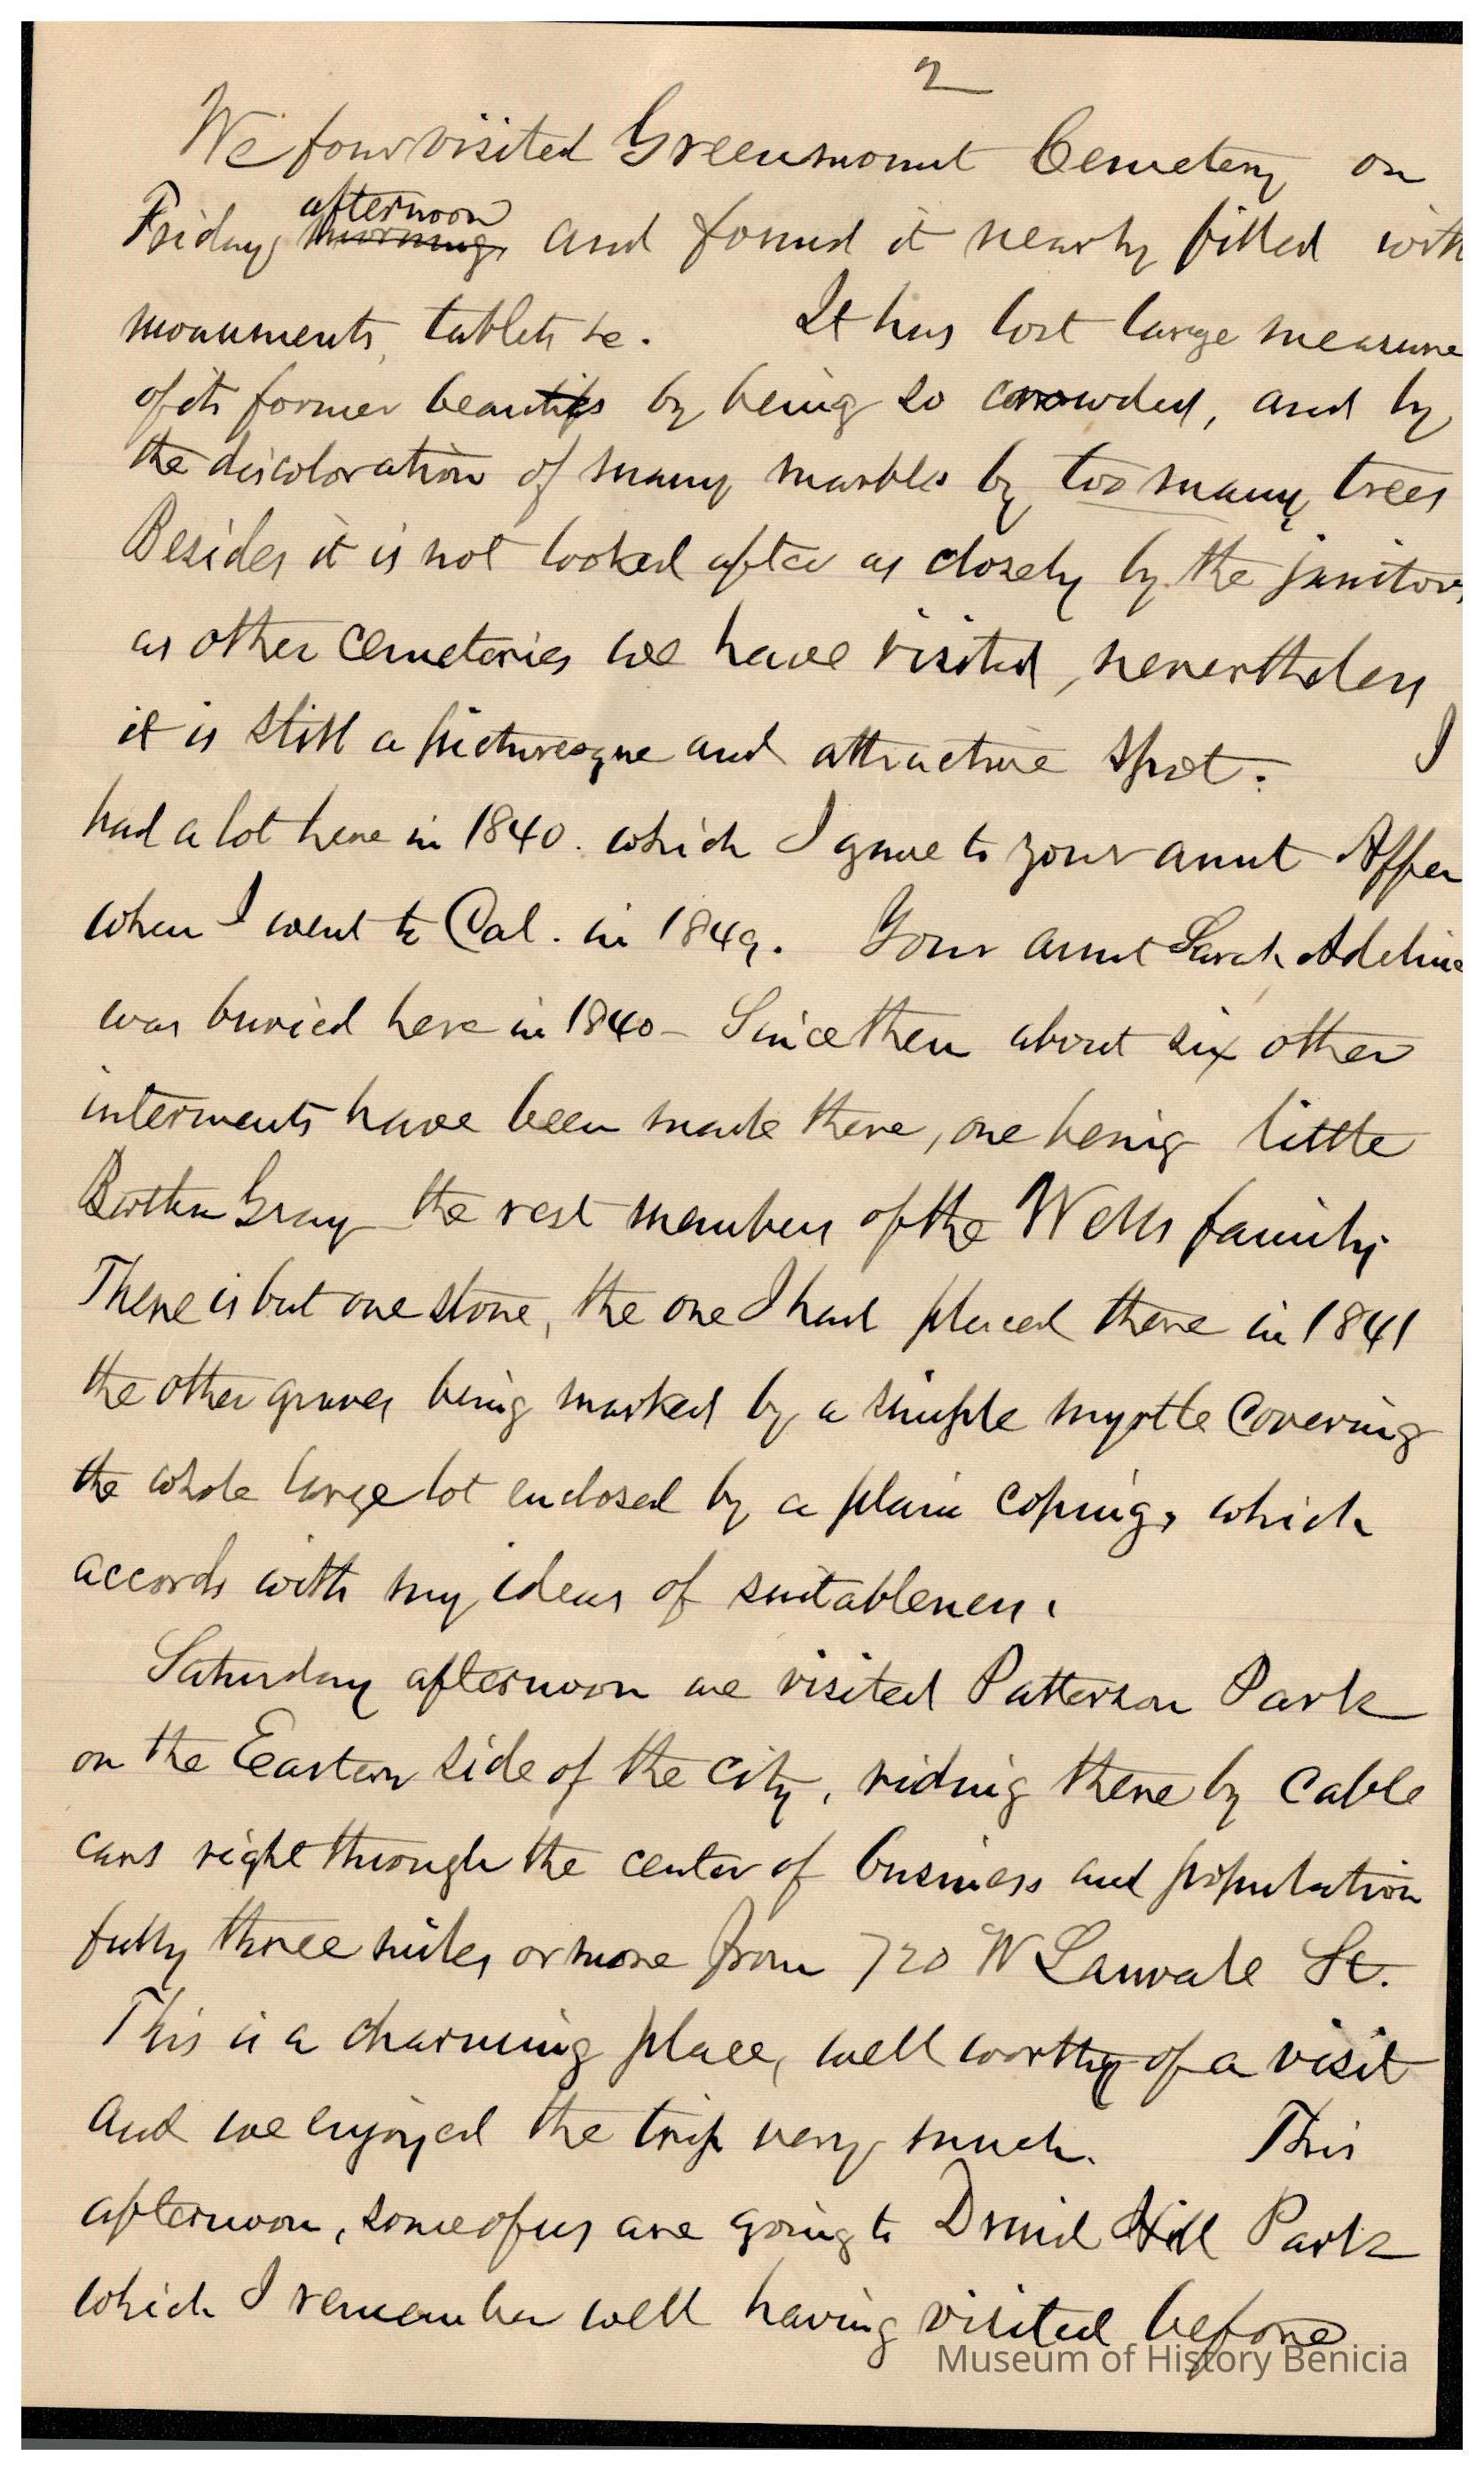 2
We four visited Greenmount Cemetery on
Friday afternoon morning, and found it nearly filled with
monuments, tablets &c. It has lost large measure
of its former beauties by being so crowded, and by
the discoloration of many marbles by too many trees
Besides it is not looked after as closely by the janitors,
as other cemeteries we have visited, nevertheless
it is still a picturesque and attractive spot. I
had a lot here in 1840. which I gave to your aunt
when I went to Cal. in 1849. Your aunt Sarah Adeline
was buried here in 1840 - Since then about six other
interments have been made there, one being little
Bertha Gray the rest members of the Wells family
There is but one stone, the one I had placed there in 1841
the other graves being marked by a simple myrtle covering
the whole large lot enclosed by a plain coping, which
accords with my ideas of suitableness.
Saturday afternoon we visited Patterson Park
on the Eastern side of the city, riding there by cable
cars right through the center of business and population
fully three miles or more from 720 W Lanvale St.
This is a charming place, well worthy of a visit
and we enjoyed the trip very much. This
afternoon, some of us are going to Druid Hill Park
which I remember well having visited before
Museum of History Benicia